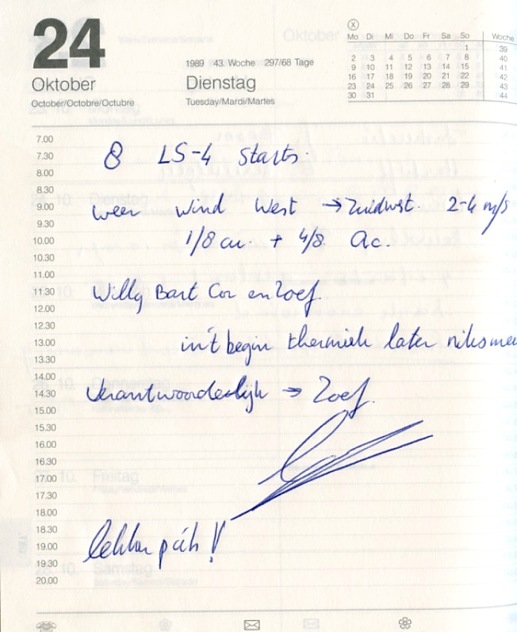 24
Oktober
October/Octobre/Octubre
1989 43. Woche 297/68 Tage
Dienstag
Tuesday/Mardi/Martes
X
Mo Di Mi Do Fr Sa So Woche
1 39
2 3 4 5 6 7 8 40
9 10 11 12 13 14 15 41
16 17 18 19 20 21 22 42
23 24 25 26 27 28 29 43
30 31 44
7.00
7.30 8 LS-4 Starts.
8.00
8.30
9.00 weer wind West → Zuidwest 2-4 m/s
9.30
10.00 1/8 cu. + 4/8 Ac.
10.30
11.00
11.30 Willy Bart Cor en Zoef.
12.00
12.30
13.00 in't begin thermiek later niks mee
13.30
14.00
14.30 Verantwoordelijk → Zoef.
15.00
15.30
16.00
16.30
17.00
17.30
18.00
18.30
19.00 lekker
19.30
20.00